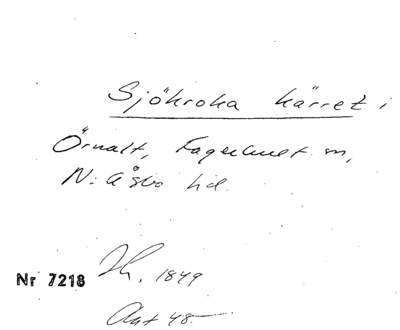 Sjökroka kärret i
Örnalt, Fagerhult sn,
N: Åsbo hd.
Nr 7218 Jh. 1849
Ant 48.